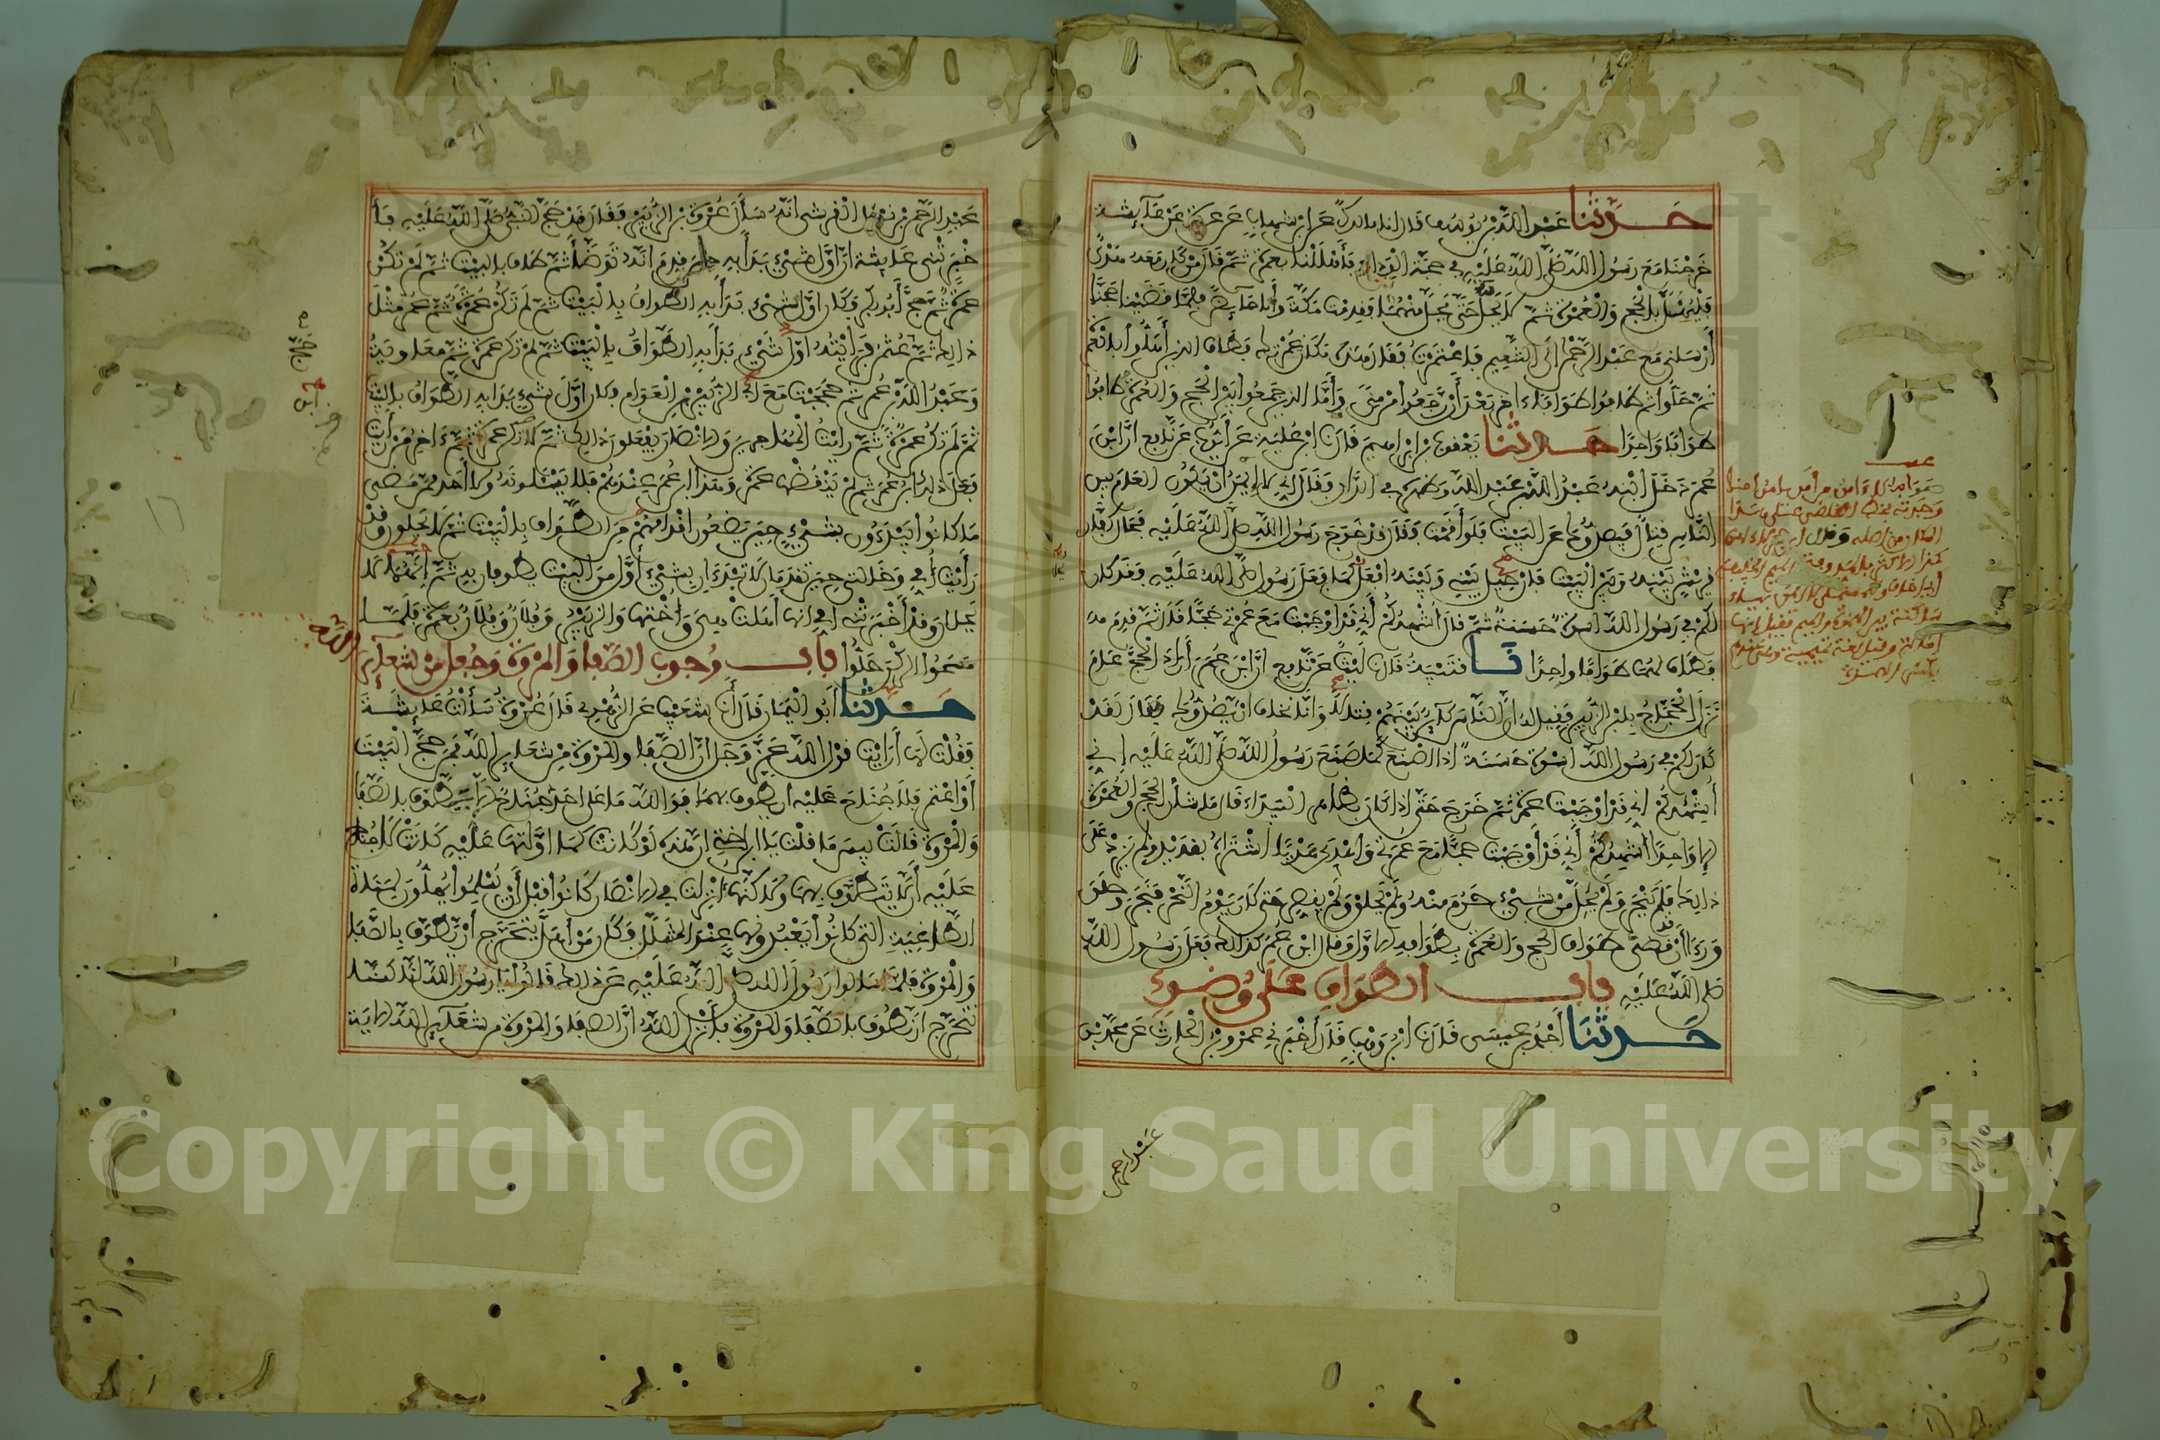 حدثنا عبد الله بن يوسف قال انا مالك عن ابن شهاب عن عروة عن عائشة
خرجنا مع رسول الله صلى الله عليه في حجة الوداع فأهللنا بعمرة ثم قال من كان معه هدي
فليهل بالحج والعمرة ثم لا يحل حتى يحل منهما فقدمت مكة وأنا حائض فلما قضينا حجنا
أرسلني مع عبد الرحمن إلى التنعيم فاعتمرت فقال هذه مكان عمرتك فطاف الذين أهلوا بالعمرة
ثم حلوا ثم طافوا طوافا آخر بعد أن رجعوا من منى وأما الذين جمعوا بين الحج والعمرة طافوا
طوافا واحدا حدثنا يعقوب بن إبراهيم قال نا ابن علية عن أيوب عن نافع ان ابن
عمر دخل ابنه عبد الله بن عبد الله وظهره في الدار فقال إني لا إيمن أن يكون العام بين
الناس قتال فيصدوك عن البيت فلو أقمت فقال قد خرج رسول الله صلى الله عليه فحال كفار
قريش بينه وبين البيت فإن حيل بيني وبينه أفعل كما فعل رسول الله صلى الله عليه فقد كان
لكم في رسول الله اسوة حسنة ثم قال أشهدكم أني قد أوجبت مع عمرتي حجا قال ثم قدم
فطاف لهما طوافا واحدا نا قتيبة قال نا ليث عن نافع ان ابن عمر أراد الحج عام
نزل الحجاج بابن الزبير فقيل له ان الناس كائن بينهم قتال وإنا نخاف أن يصدوك فقال لقد
كان لكم في رسول الله أسوة حسنة إذا أصنع كما صنع رسول الله صلى الله عليه إني
أشهدكم اني قد أوجبت عمرة ثم خرج حتى إذا كان بظاهر البيداء قال ما شأن الحج والعمرة
إلا واحد أشهدكم أني قد أوجبت حجا مع عمرتي وأهدى هديا اشتراه بقديد ولم يزد على
ذلك فلم ينحر ولم يحل من شيء حرم منه ولم يحلق ولم يقصر حتى كان يوم النحر فنحر وحلق
ورءا أن قد قضى طواف الحج والعمرة بطوافه الاول وقال ابن عمر كذلك فعل رسول الله
صلى الله عليه باب الطواف على وضوء
حدثنا أحمد بن عيسى قال نا ابن وهب قال أخبرني عمرو بن الحارث عن محمد بن
عبد الرحمن
عبد الرحمن بن نوفل القرشي انه سأل عروة بن الزبير فقال قد حج النبي صلى الله عليه فأ
خبرتني عائشة ان أول شيء بدأ به حين قدم انه توضأ ثم طاف بالبيت ثم لم تكن
عمرة ثم حج أبو بكر فكان أول شيء بدأ به الطواف بالبيت ثم لم تكن عمرة ثم عمر مثل
ذلك ثم حج عثمن فرأيته أول شيء بدأ به الطواف بالبيت ثم لم تكن عمرة ثم معاوية
وعبد الله بن عمر ثم حججت مع أبي الزبير بن العوام فكان أول شيء بدا به الطواف بالبيت
ثم لم تكن عمرة ثم رأيت المهاجرين والانصار يفعلون ذلك ثم لا تكن عمرة ثم ءاخر من رأيت
فعل ذلك ابن عمر ثم لم ينقضها عمرة وهذا ابن عمر عندهم فلا يسئلونه ولا أحد ممن مضى
ما كانوا يبدءون بشيء حين يضعون اقدامهم من الطواف بالبيت ثم لا يحلون وقد
رأيت أمي وخالتي حين تقدمان لا تبتدءان بشيء أول من البيت يطوفان به ثم انهما لا
يحلان وقد أخبرتني امي انها أهلت هي وأختها والزبير وفلان وفلان بعمرة فلما
مسحوا الركن حلوا باب وجوب الصفا والمروة وجعل من شعائر
الله
حدثنا أبو اليمان قال أنا شعيب عن الزهري قال عروة سألت عائشة
فقلت لها أرأيت قول الله عز وجل ان الصفا والمروة من شعاير الله فمن حج البيت
أو اعتمر فلا جناح عليه أن يطوف بهما فوالله ما على احد جناح ان لا يطوف بالصفا
والمروة قالت بيس ما قلت يا ابن اختي ان هذه لو كانت كما اولتها عليه كانت لا جناح
عليه أن لا يتطوف بهما ولكنها أنزلت في الانصار كانوا قبل أن يسلموا يهلون لمناة
الطاغية التي كانوا يعبدونها عند المشلل فكان من أهل يتحرج أن يطوف بالصفا
والمروة فلما اسلموا سألوا رسول الله صلى الله عليه عن ذلك قالوا يا رسول الله انا كنا
نتحرج ان نطوف بالصفا والمروة فأنزل الله ان الصفا والمروة من شعاير الله الاية
Copyright © King Saud University